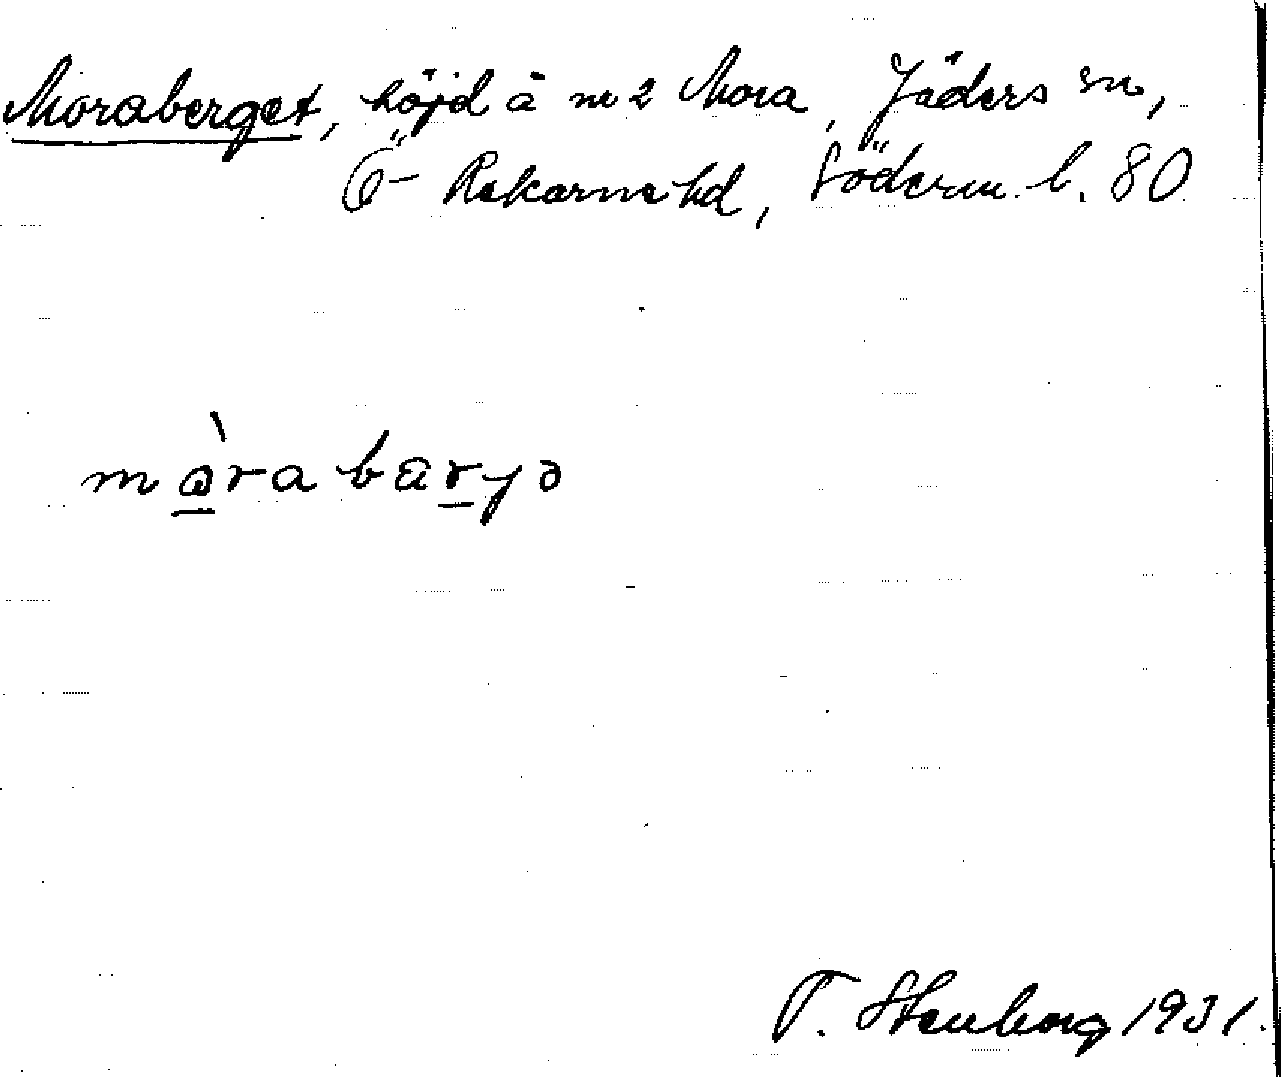 Moraberget, höjd å nr 2 Mora, Jäders sn,
Ö-Rekarne hd, Söderm. l. 80
màra bäryə
T. Stenborg 1931.